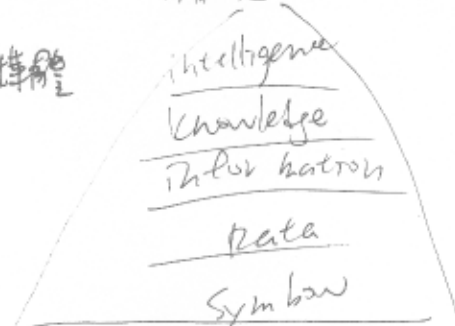 intelligence
knowledge
information
Data
Symbow